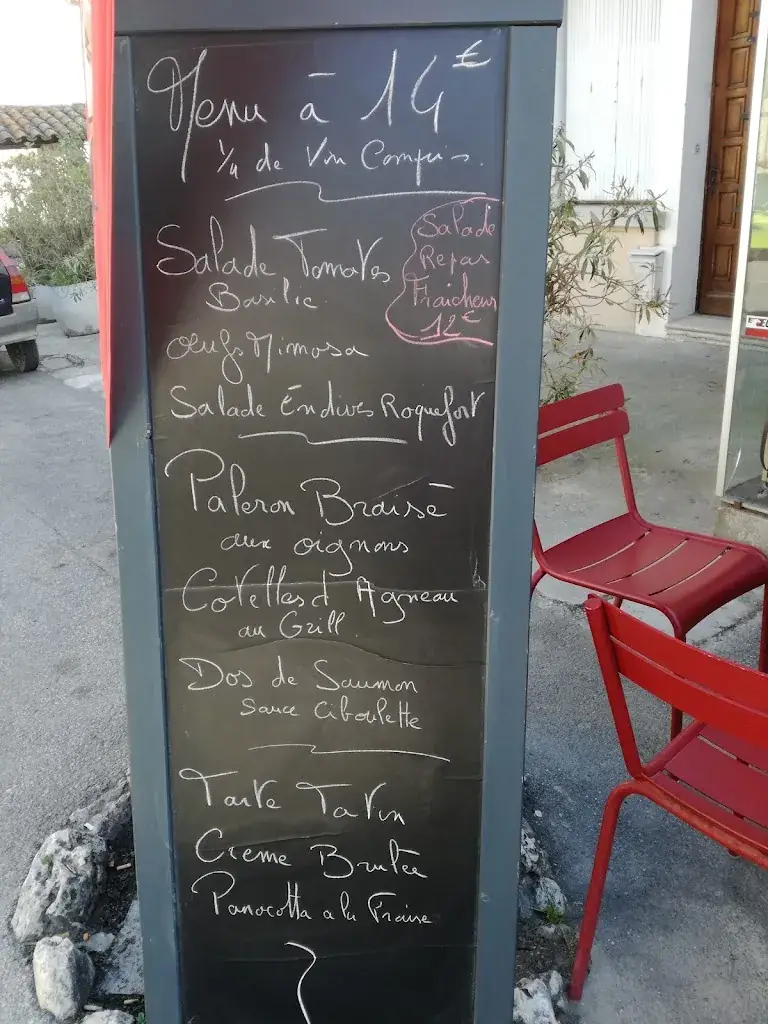 Menu à 14€
1/4 de Vin Compris.
Salade Tomates
Basilic
Salade
Repas
Fraicheur
12€
Oeufs Mimosa
Salade Endives Roquefort
Paleron Braisé
aux oignons
Cotelles d'Agneau
au Grill
Dos de Saumon
Sauce Ciboulette
Tarte Tatin
Creme Brulée
Panacotta a la Fraise